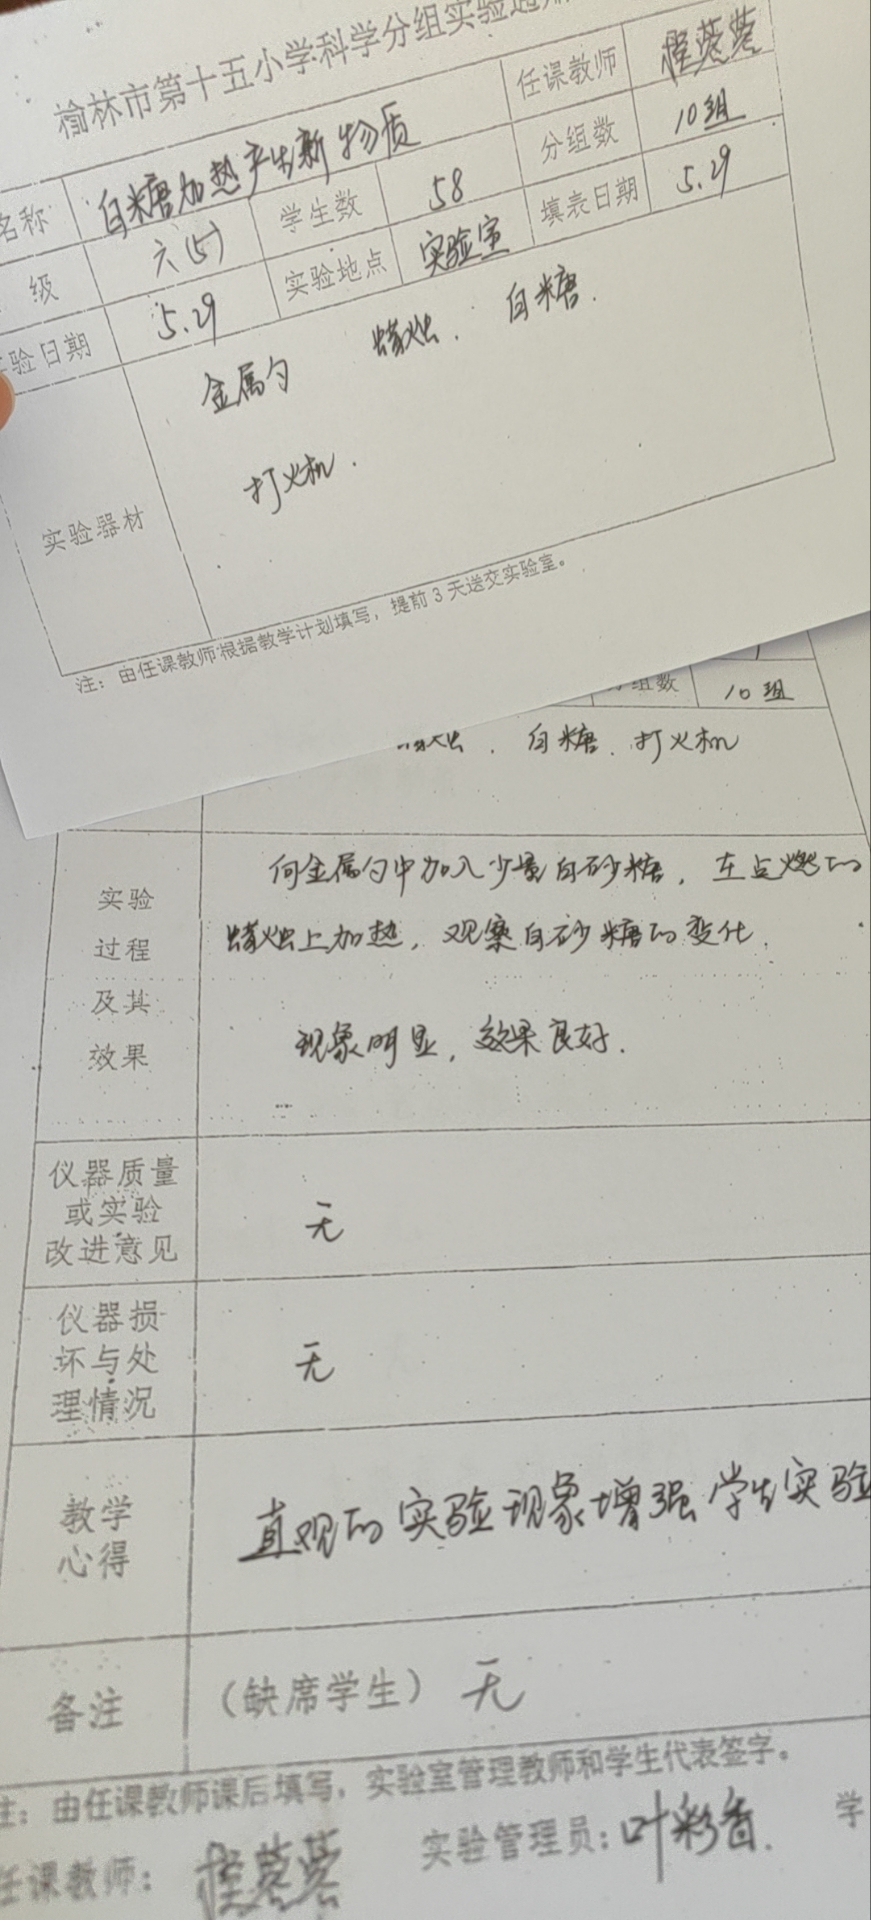 榆林市第十五小学科学分组实验通
名称 白糖加热产生新物质 任课教师
级 六(5) 学生数 58 分组数 10组
实验日期 5.29 实验地点 实验室 填表日期 5.29
实验器材 金属勺 蜡烛. 白糖.
打火机.
注：由任课教师根据教学计划填写，提前3天送交实验室。
分组数 10组
蜡烛. 白糖. 打火机
实验过程及其效果
向金属勺中加入少量白砂糖, 在点燃的
蜡烛上加热, 观察白砂糖的变化.
现象明显, 效果良好.
仪器质量或实验改进意见 无
仪器损坏与处理情况 无
教学心得 直观的实验现象增强学生实验
备注 （缺席学生） 无
注：由任课教师课后填写，实验室管理教师和学生代表签字。
任课教师： 实验管理员：叶彩香. 学